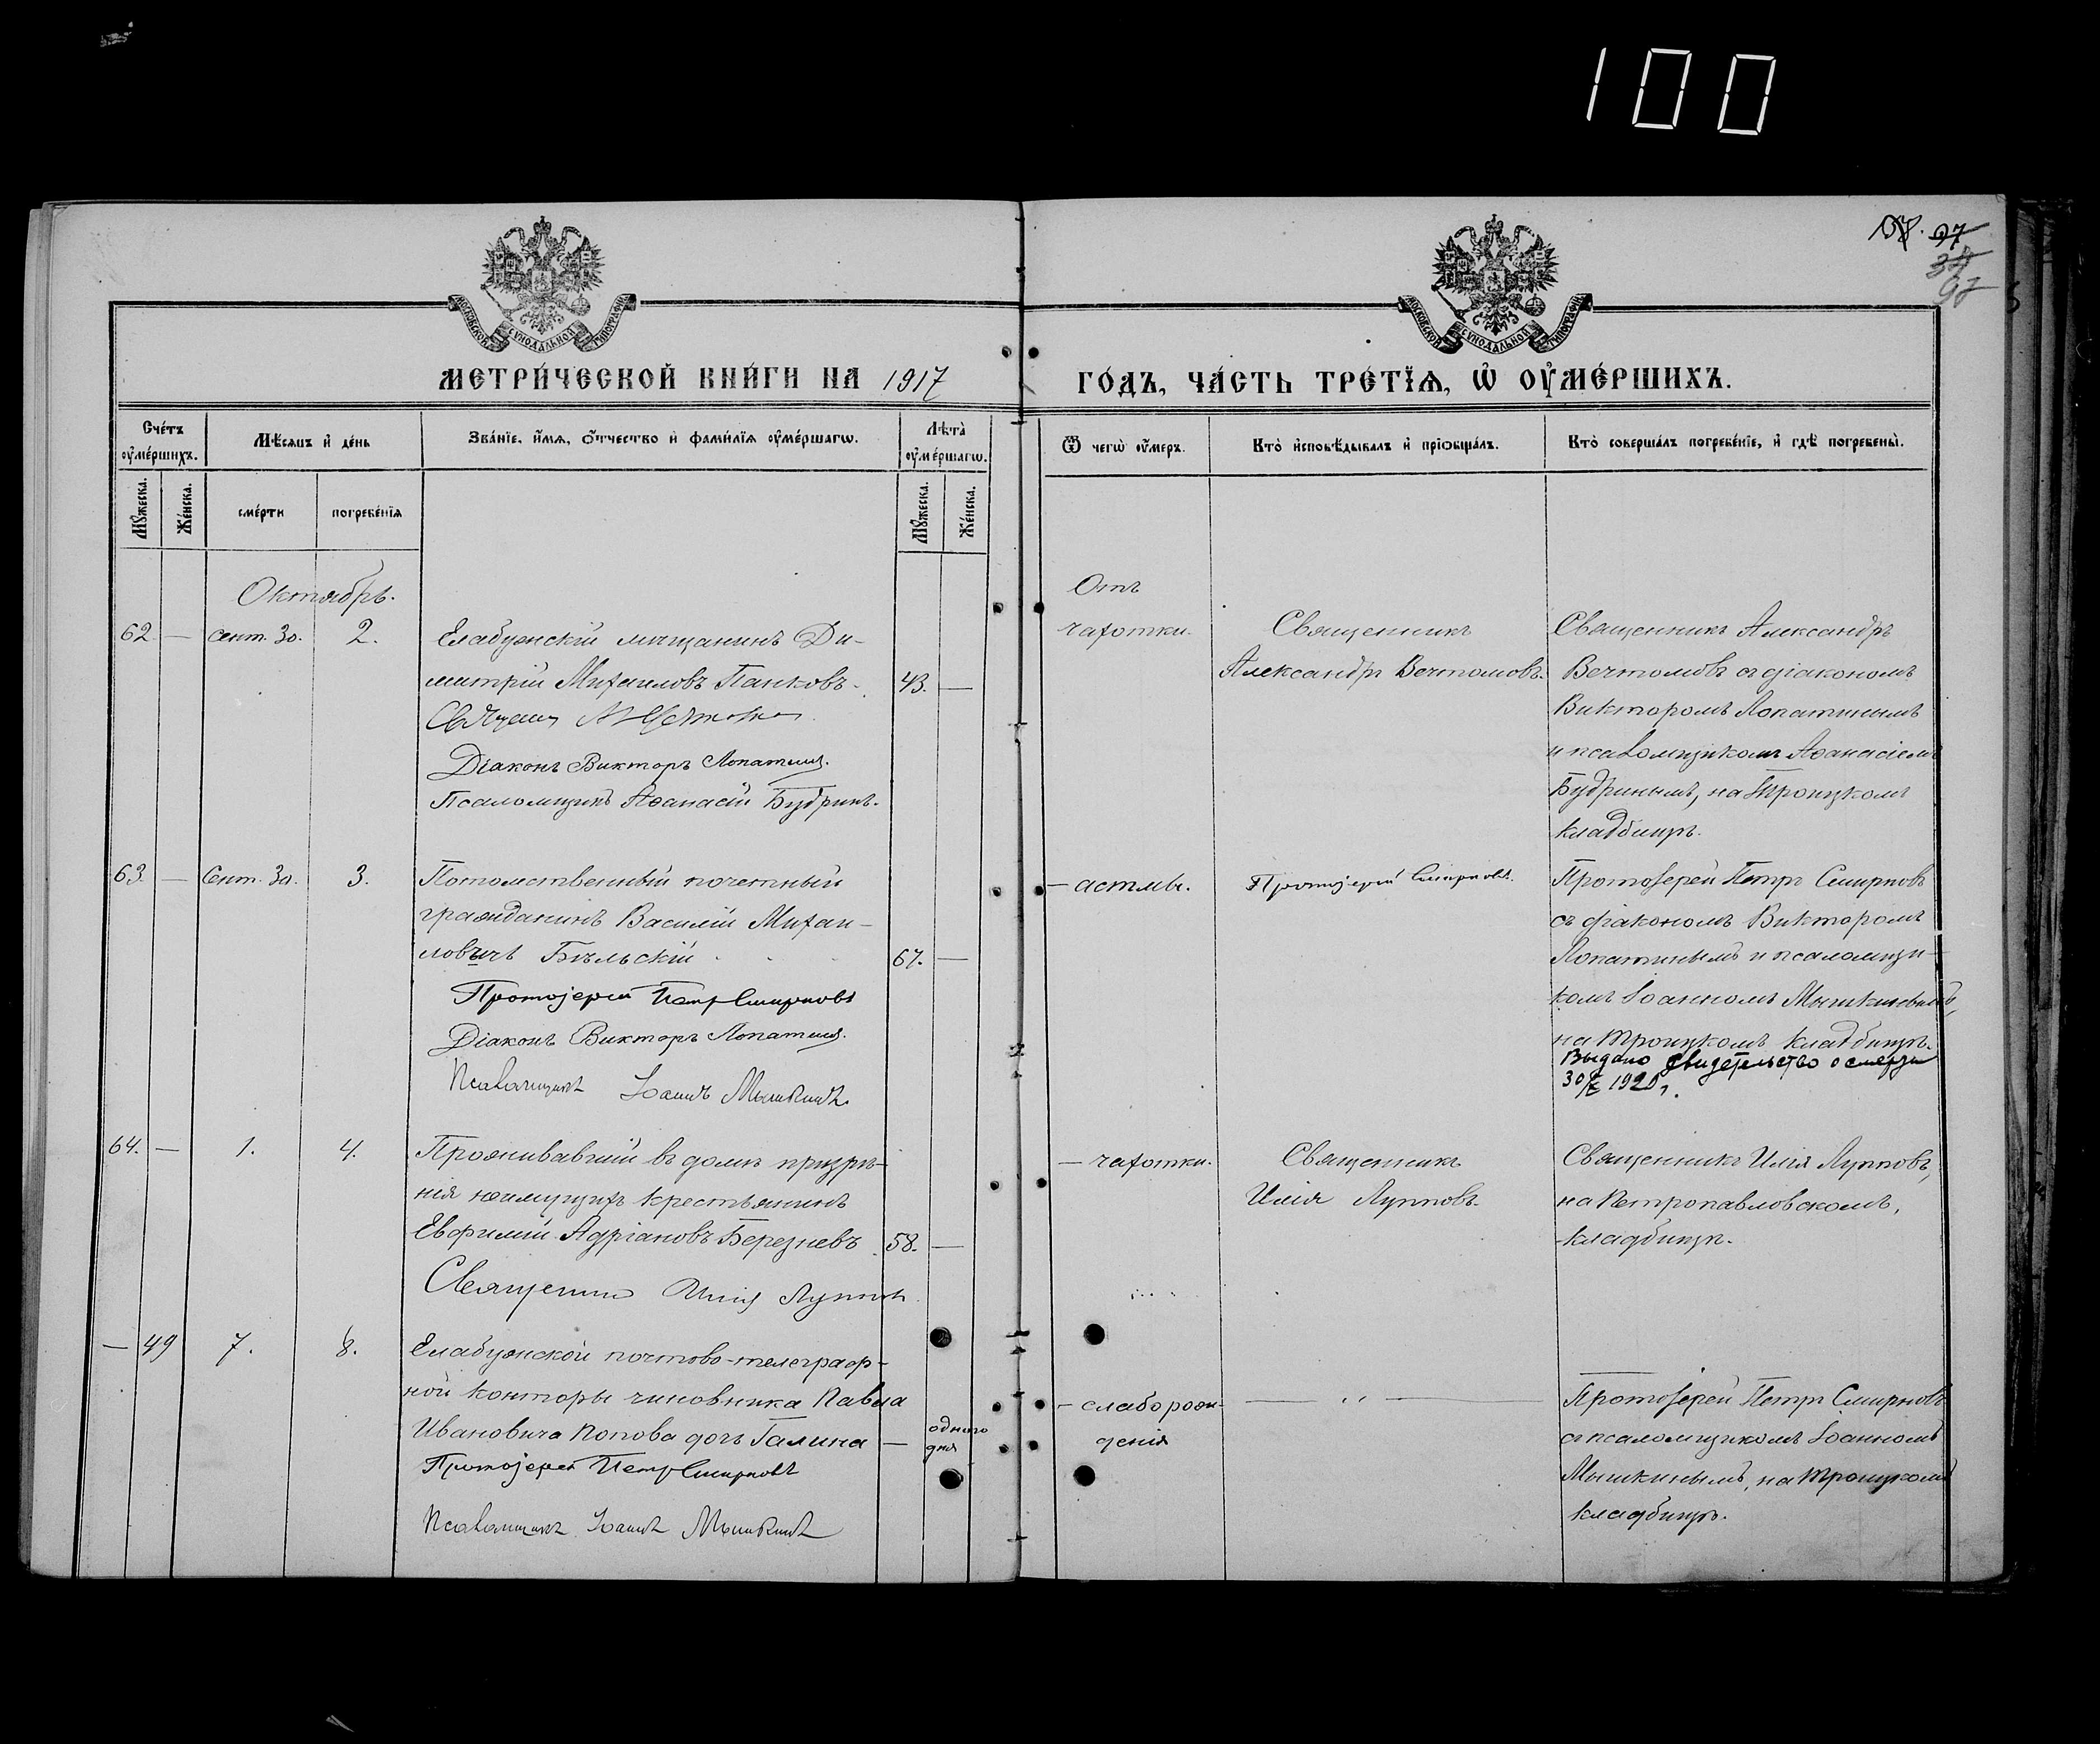 100
97
МОСКОВСКОЙ СѴНОДАЛЬНОЙ ТИПОГРАФІИ
МОСКОВСКОЙ СѴНОДАЛЬНОЙ ТИПОГРАФІИ
МЕТРИ́ЧЕСКОЙ КНИ́ГИ НА 1917
ГО́ДЪ, ЧА́СТЬ ТРЕ́ТЇѦ, Ѡ҆ ОУ҆МЕ́РШИХЪ.
Сче́тъ оу҆ме́ршихъ.
Мѣ́сѧцъ и҆ де́нь
Зва́нїе, и҆́мѧ, ѻ҆́тчество и҆ фами́лїѧ оу҆ме́ршагѡ.
Лѣ́та оу҆ме́ршагѡ.
Ѿ чегѡ̀ оу҆́меръ.
Кто̀ и҆сповѣ́дывалъ и҆ прїѡбща́лъ.
Кто̀ соверша́лъ погребе́нїе, и҆ гдѣ̀ погребены̀.
Мꙋ́жеска.
Же́нска.
сме́рти
погребе́нїѧ
Мꙋ́жеска.
Же́нска.
Октябрь.
62 — Сент. 30. 2.
Елабужскій мѣщанинъ Ди-
митрій Михаиловъ Панковъ.
43. —
Діаконъ Викторъ Лопатинъ.
Псаломщикъ Аѳанасій Будринъ.
Отъ
чахотки.
Священникъ
Александръ Вечтомовъ.
Священникъ Александръ
Вечтомовъ съ діакономъ
Викторомъ Лопатинымъ
и псаломщикомъ Аѳанасіемъ
Будринымъ, на Троицкомъ
кладбищѣ.
63. — Сент. 30. 3.
Потомственный почетный
гражданинъ Василій Михаи-
ловичъ Бѣльскій
67. —
Протоіерей Петръ Смирновъ
Діаконъ Викторъ Лопатинъ.
Псаломщикъ Іоаннъ Мышкинъ.
— астмы.
Протоіерей Смирновъ.
Протоіерей Петръ Смирновъ
съ діакономъ Викторомъ
Лопатинымъ и псаломщи-
комъ Іоанномъ Мышкинымъ,
на Троицкомъ кладбищѣ.
Выдано свидетельство о смерти
30/X 1920 г.
64. — 1. 4.
Проживавшій въ домѣ призрѣ-
нія неимущихъ крестьянинъ
Евфимій Адріановъ Березневъ
58. —
Священникъ Илія Лупповъ
— чахотки.
Священникъ
Илія Лупповъ.
Священникъ Илія Лупповъ,
на Петропавловскомъ,
кладбищѣ.
— 49 7. 8.
Елабужской почтово-телеграф-
ной конторы чиновника Павла
Ивановича Попова дочь Галина
— одного
дня
Протоіерей Петръ Смирновъ
Псаломщикъ Іоаннъ Мышкинъ
— слаборож-
денія
— „ —
Протоіерей Петръ Смирновъ
съ псаломщикомъ Іоанномъ
Мышкинымъ, на Троицкомъ
кладбищѣ.